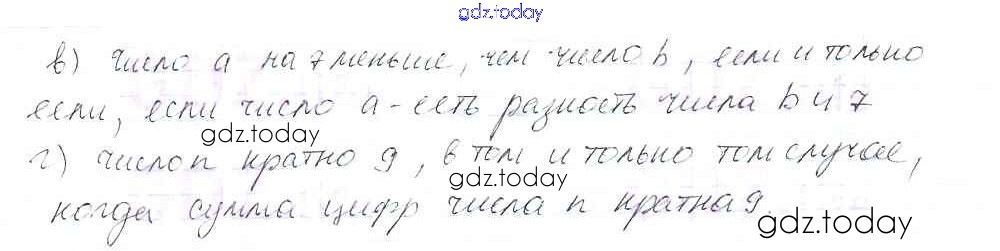 gdz.today
в) число a на 7 меньше, чем число b, если и только
если, если число a - есть разность числа b и 7
gdz.today
г) число n кратно 9, в том и только том случае,
gdz.today
когда сумма цифр числа n кратна 9
gdz.today